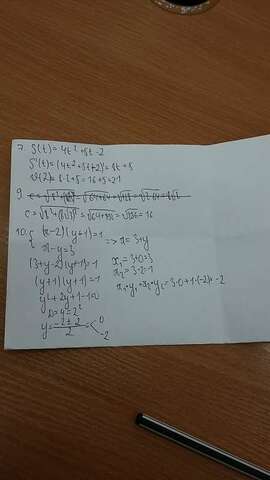 7. S(t) = 4t² + 5t - 2
S'(t) = (4t² + 5t + 2)' = 8t + 5
v(2) = 8·2 + 5 = 16 + 5 = 21
9.
c = √8² + (8√3)² = √64 + 192 = √256 = 16
10. { (x-2)(y+1) = 1
x - y = 3 => x = 3 + y
(3 + y - 2)(y + 1) = 1
(y + 1)(y + 1) = 1
y² + 2y + 1 - 1 = 0
D = 4 = 2²
y = -2 ± 2 / 2
0
-2
x₁ = 3 + 0 = 3
x₂ = 3 - 2 = 1
x₁·y₁ + x₂·y₂ = 3·0 + 1·(-2) = -2